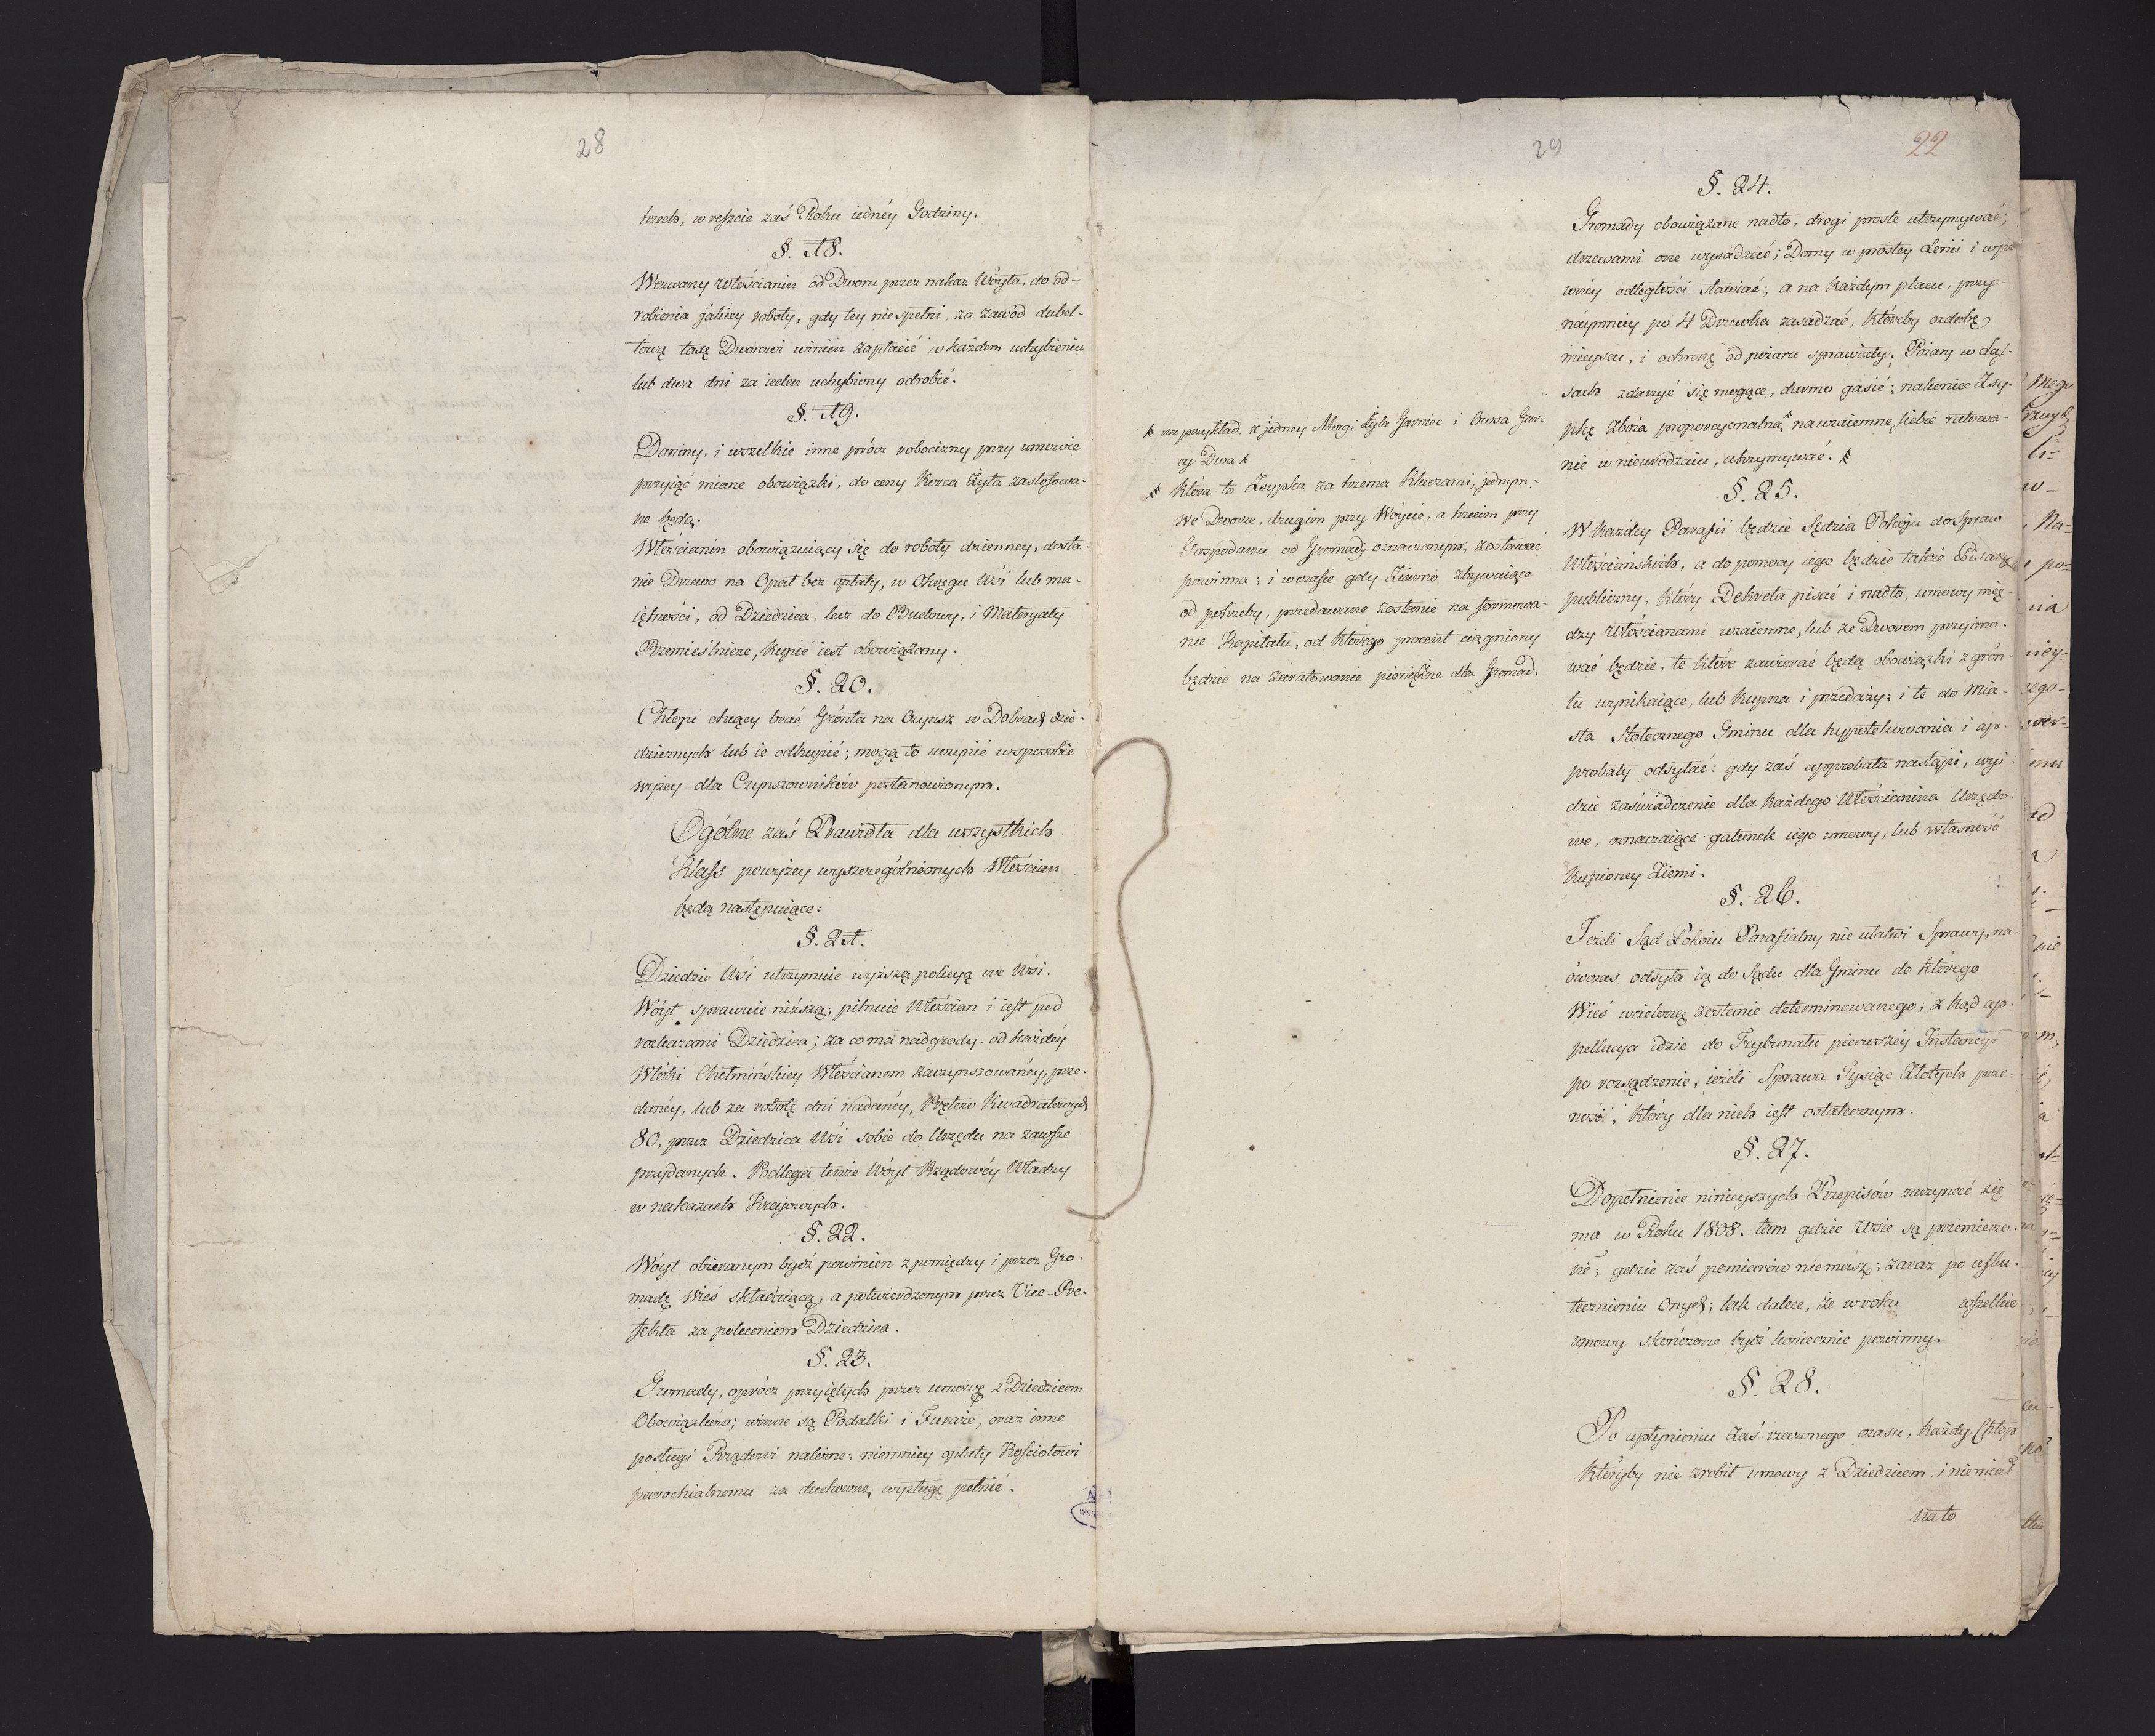 28
trzech, w reszcie zaś Roku iednéy Godziny.
§. 18.
Wezwany Włościanin od Dworu przez nakaz Wóyta, do od-
robienia jakiey roboty, gdy tey nie spełni, za zawód dubel-
tową taxę Dworowi winien zapłacić w każdem uchybieniu
lub dwa dni za ieden uchybiony odrobić.
§. 19.
Daniny, i wszelkie inne prócz robocizny przy umowie
przyiąć miane obowiązki, do ceny Korca Żyta zastosowa-
ne będą.
Włościanin obowiązuiący się do roboty dzienney, dosta-
nie Drzewo na Opał bez opłaty, w Okręgu Wsi lub ma-
iętności, od Dziedzica, lecz do Budowy, i Materyały
Rzemieślnicze, kupić iest obowiązany.
§. 20.
Chłopi chcący brać Grónta na Czynsz w Dobrach dzie-
dzicznych lub ie odkupić; mogą to uczynić w sposobie
wyżey dla Czynszowników postanowionym.
Ogólne zaś Prawidła dla wszystkich
Klass powyżey wyszczególnionych Włościan
będą następuiące:
§. 21.
Dziedzic Wsi utrzymuie wyższą policyą we Wsi.
Wóyt sprawuie niższą; pilnuie Włościan i iest pod
rozkazami Dziedzica; za co ma nadgrody od każdéy
Włóki Chełmińskiey Włościanom zaczynszowanéy, prze-
danéy, lub za robotę dni nadanéy, Prętów Kwadratowych
80, przez Dziedzica Wsi sobie do Urzędu na zawsze
przydanych. Podlega tenże Wóyt Rządowéy Władzy
w nakazach Kraiowych.
§. 22.
Wóyt obieranym bydź powinien z pomiędzy i przez Gro-
madę Wieś składaiącą, a potwierdzonym przez Vice-Pre-
fekta za poleceniem Dziedzica.
§. 23.
Gromady, oprócz przyiętych przez umowę z Dziedzicem
Obowiązków; winne są Podatki i Furaże, oraz inne
posługi Rządowi należne; niemniey opłaty Kościołowi
parochialnemu za duchowną wysługę pełnić.
29
22
* na przykład, z jedney Morgi Żyta Garniec i Owsa Gar-
cy Dwa *
# która to Zsypka za trzema Kluczami, jednym
we Dworze, drugim przy Wóycie, a trzecim przy
Gospodarzu od Gromady oznaczonym, zostawać
powinna; i w czasie gdy Ziarno zbywaiące
od potrzeby, przedawane zostanie na formowa-
nie Kapitału, od którego procent ciągniony
będzie na zaratowanie pieniężne dla Gromad.
§. 24.
Gromady obowiązane nadto, drogi proste utrzymywać;
drzewami one wysadzać; Domy w prostey Lenii i w pe-
wney odległości stawiać; a na każdym placu, przy-
náymniey po 4 Drzewka zasadzać, któreby ozdobę
mieyscu, i ochronę od pożaru sprawiały; Pożary w Las-
sach zdarzyć się mogące, darmo gasić; nakoniec Zsy-
pkę Zboża proporcyonalną * na wzaiemne siebie ratowa-
nie w nieurodzaiu, utrzymywać. #
§. 25.
W każdey Parafii będzie Sędzia Pokoju do Spraw
Włościańskich, a do pomocy iego będzie także Pisarz
publiczny, który Dekreta pisać i nadto, umowy mię-
dzy Włościanami wzaiemne, lub ze Dworem przyimo-
wać będzie, te które zawierać będą obowiązki z grón-
tu wynikaiące, lub kupna i przedaży; i te do Mia-
sta Stołecznego Gminu dla hypotekowania i ap-
probaty odsyłać: gdy zaś approbata nastąpi, wyi-
dzie zaświadczenie dla każdego Włościanina Urzędo-
we, oznaczaiące gatunek iego umowy, lub własność
kupioney Ziemi.
§. 26.
Jeżeli Sąd Pokoiu Parafialny nie ułatwi Sprawy, na-
ówczas odsyła ią do Sądu dla Gminu do którego
Wieś wcieloną zostanie determinowanego; z kąd ap-
pellacya idzie do Trybunału pierwszéy Instancyi
po rozsądzenie, ieżeli Sprawa Tysiąc Złotych prze-
nosi, który dla nich iest ostatecznym.
§. 27.
Dopełnienie ninieyszych Przepisów zaczynać się
ma w Roku 1808. tam gdzie Wsie są przemierzo-
ne; gdzie zaś pomiarów niemasz; zaraz po usku-
tecznieniu onych; tak dalece, że w roku wszelkie
umowy skończone bydź koniecznie powinny.
§. 28.
Po upłynieniu zaś rzeczonego czasu, każdy Chłop
któryby nie zrobił umowy z Dziedzicem, i nie miał
na to